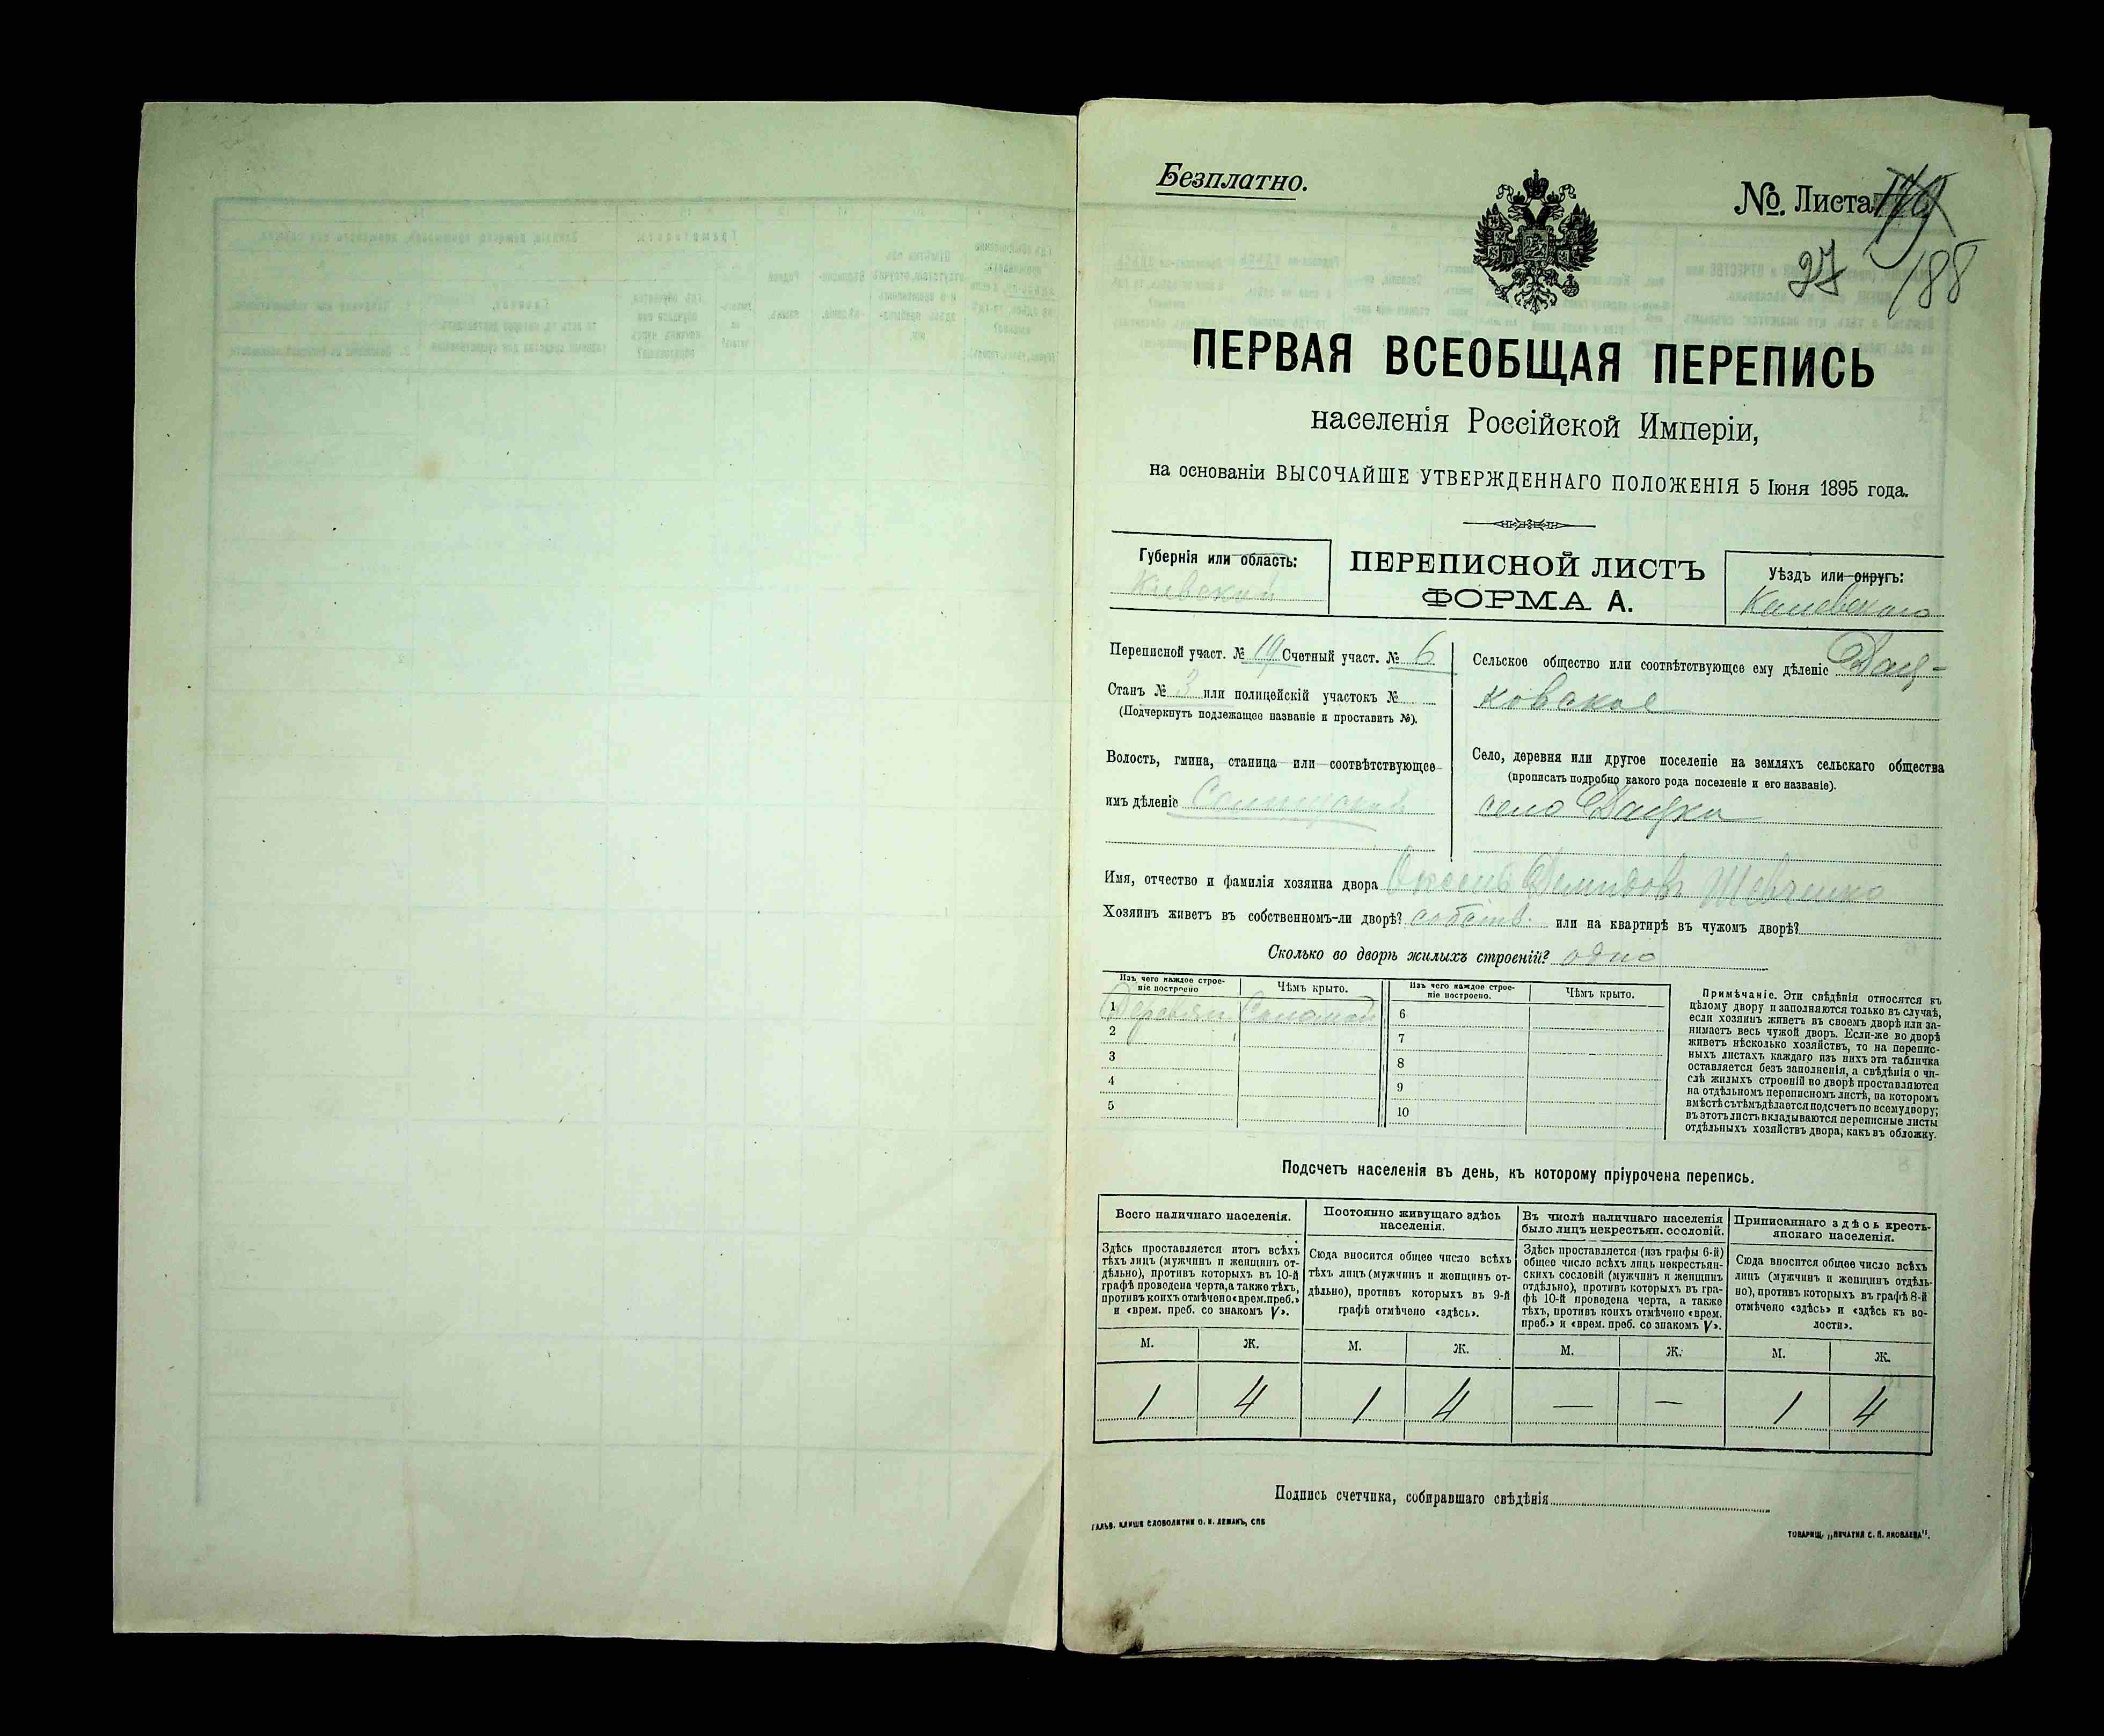 Безплатно.
№. Листа
27 188
ПЕРВАЯ ВСЕОБЩАЯ ПЕРЕПИСЬ
населенія Россійской Имперіи,
на основаніи ВЫСОЧАЙШЕ УТВЕРЖДЕННАГО ПОЛОЖЕНІЯ 5 Іюня 1895 года.
Губернія или область:
Кіевской
ПЕРЕПИСНОЙ ЛИСТЪ
ФОРМА А.
Уѣздъ или округъ:
Каневскаго
Переписной участ. № 19 Счетный участ. № 6
Станъ № 3 или полицейскій участокъ №
(Подчеркнуть подлежащее названіе и проставить №).
Волость, гмина, станица или соотвѣтствующее
имъ дѣленіе
Сельское общество или соотвѣтствующее ему дѣленіе Дац-
ковское
Село, деревня или другое поселеніе на земляхъ сельскаго общества
(прописать подробно какого рода поселеніе и его названіе).
село Дацки
Имя, отчество и фамилія хозяина двора Демидовъ Шевченко
Хозяинъ живетъ въ собственномъ-ли дворѣ? собств. или на квартирѣ въ чужомъ дворѣ?
Сколько во дворѣ жилыхъ строеній? одно
Изъ чего каждое строе-
ніе построено
Чѣмъ крыто.
Изъ чего каждое строе-
ніе построено.
Чѣмъ крыто.
1 Деревян Соломой
2
3
4
5
6
7
8
9
10
Примѣчаніе. Эти свѣдѣнія относятся къ
цѣлому двору и заполняются только въ случаѣ,
если хозяинъ живетъ въ своемъ дворѣ или за-
нимаетъ весь чужой дворъ. Если-же во дворѣ
живетъ нѣсколько хозяйствъ, то на перепис-
ныхъ листахъ каждаго изъ нихъ эта табличка
оставляется безъ заполненія, а свѣдѣнія о чи-
слѣ жилыхъ строеній во дворѣ проставляются
на отдѣльномъ переписномъ листѣ, на которомъ
вмѣстѣ съ тѣмъ дѣлается подсчетъ по всему двору;
въ этотъ листъ вкладываются переписные листы
отдѣльныхъ хозяйствъ двора, какъ въ обложку.
Подсчетъ населенія въ день, къ которому пріурочена перепись.
Всего наличнаго населенія.
Здѣсь проставляется итогъ всѣхъ
тѣхъ лицъ (мужчинъ и женщинъ от-
дѣльно), противъ которыхъ въ 10-й
графѣ проведена черта, а также тѣхъ,
противъ коихъ отмѣчено «врем. преб.»
и «врем. преб. со знакомъ V».
Постоянно живущаго здѣсь
населенія.
Сюда вносится общее число всѣхъ
тѣхъ лицъ (мужчинъ и женщинъ от-
дѣльно), противъ которыхъ въ 9-й
графѣ отмѣчено «здѣсь».
Въ числѣ наличнаго населенія
было лицъ некрестьян. сословій.
Здѣсь проставляется (изъ графы 6-й)
общее число всѣхъ лицъ некрестьян-
скихъ сословій (мужчинъ и женщинъ
отдѣльно), противъ которыхъ въ гра-
фѣ 10-й проведена черта, а также
тѣхъ, противъ коихъ отмѣчено «врем.
преб.» и «врем. преб. со знакомъ V».
Приписаннаго здѣсь кресть-
янскаго населенія.
Сюда вносится общее число всѣхъ
лицъ (мужчинъ и женщинъ отдѣль-
но), противъ которыхъ въ графѣ 8-й
отмѣчено «здѣсь» и «здѣсь къ во-
лости».
М. Ж. М. Ж. М. Ж. М. Ж.
1 4 1 4 — — 1 4
Подпись счетчика, собиравшаго свѣдѣнія
ГАЛЬВ. КЛИШЕ СЛОВОЛИТНИ О. И. ЛЕМАНЪ, СПБ
ТОВАРИЩ. „ПЕЧАТНЯ С. П. ЯКОВЛЕВА".